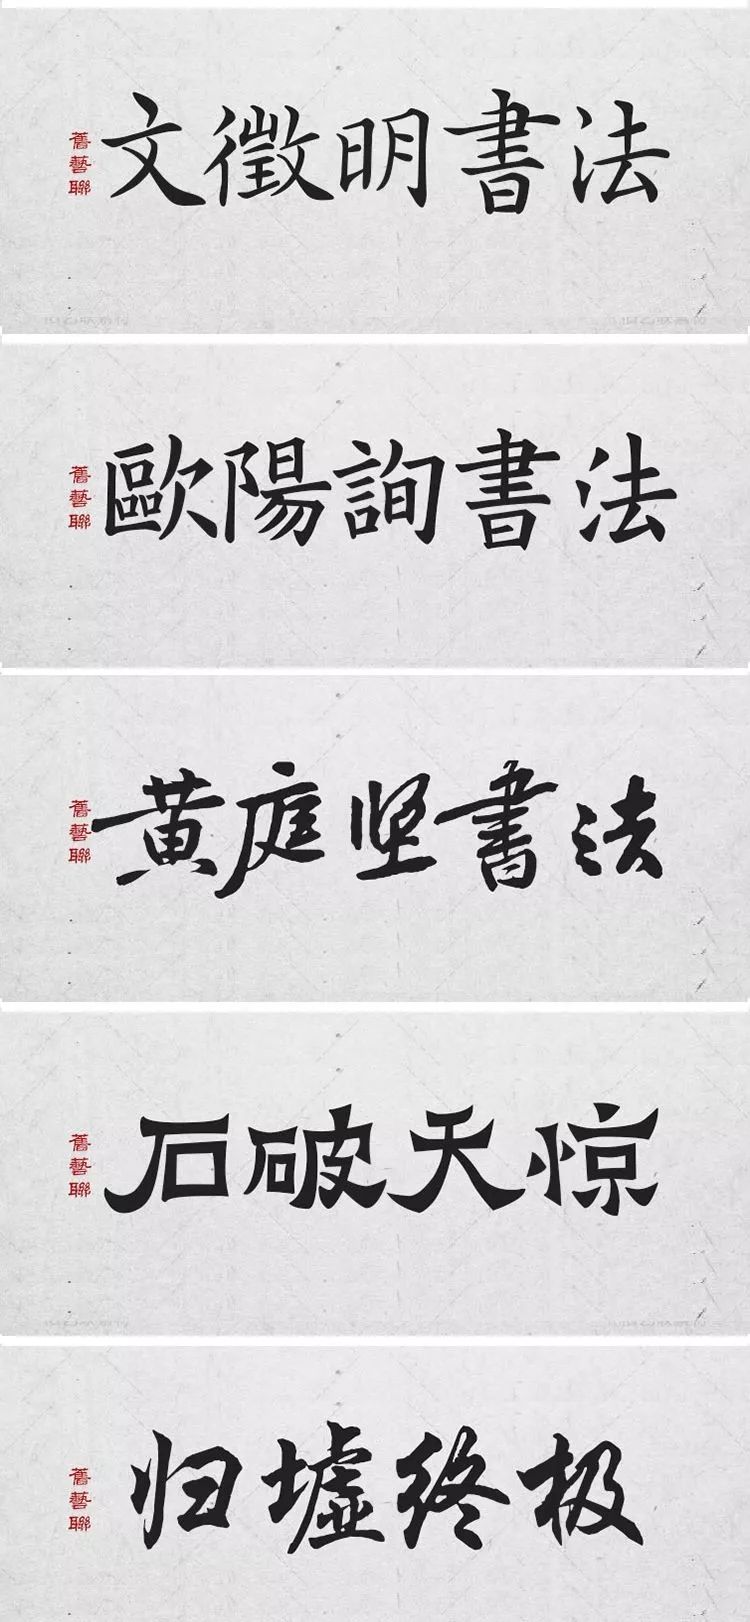 文徵明書法
舊藝聯
歐陽詢書法
舊藝聯
黄庭坚書法
舊藝聯
石破天惊
舊藝聯
归墟终极
舊藝聯